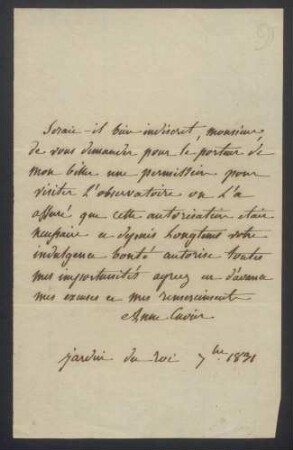 Seraie-il bien indiscret, monsieur,
de vous demander pour le porteur de
mon billet une permission pour
visiter L'observatoire on L'a
assuré que cette autorisation etait
necessaire et depuis Longtems votre
indulgente bonté autorise toutes
mes importunités agreez en d'avance
mes excuses et mes remerciments
Anne Cuvier
jardin du roi 7bre 1831